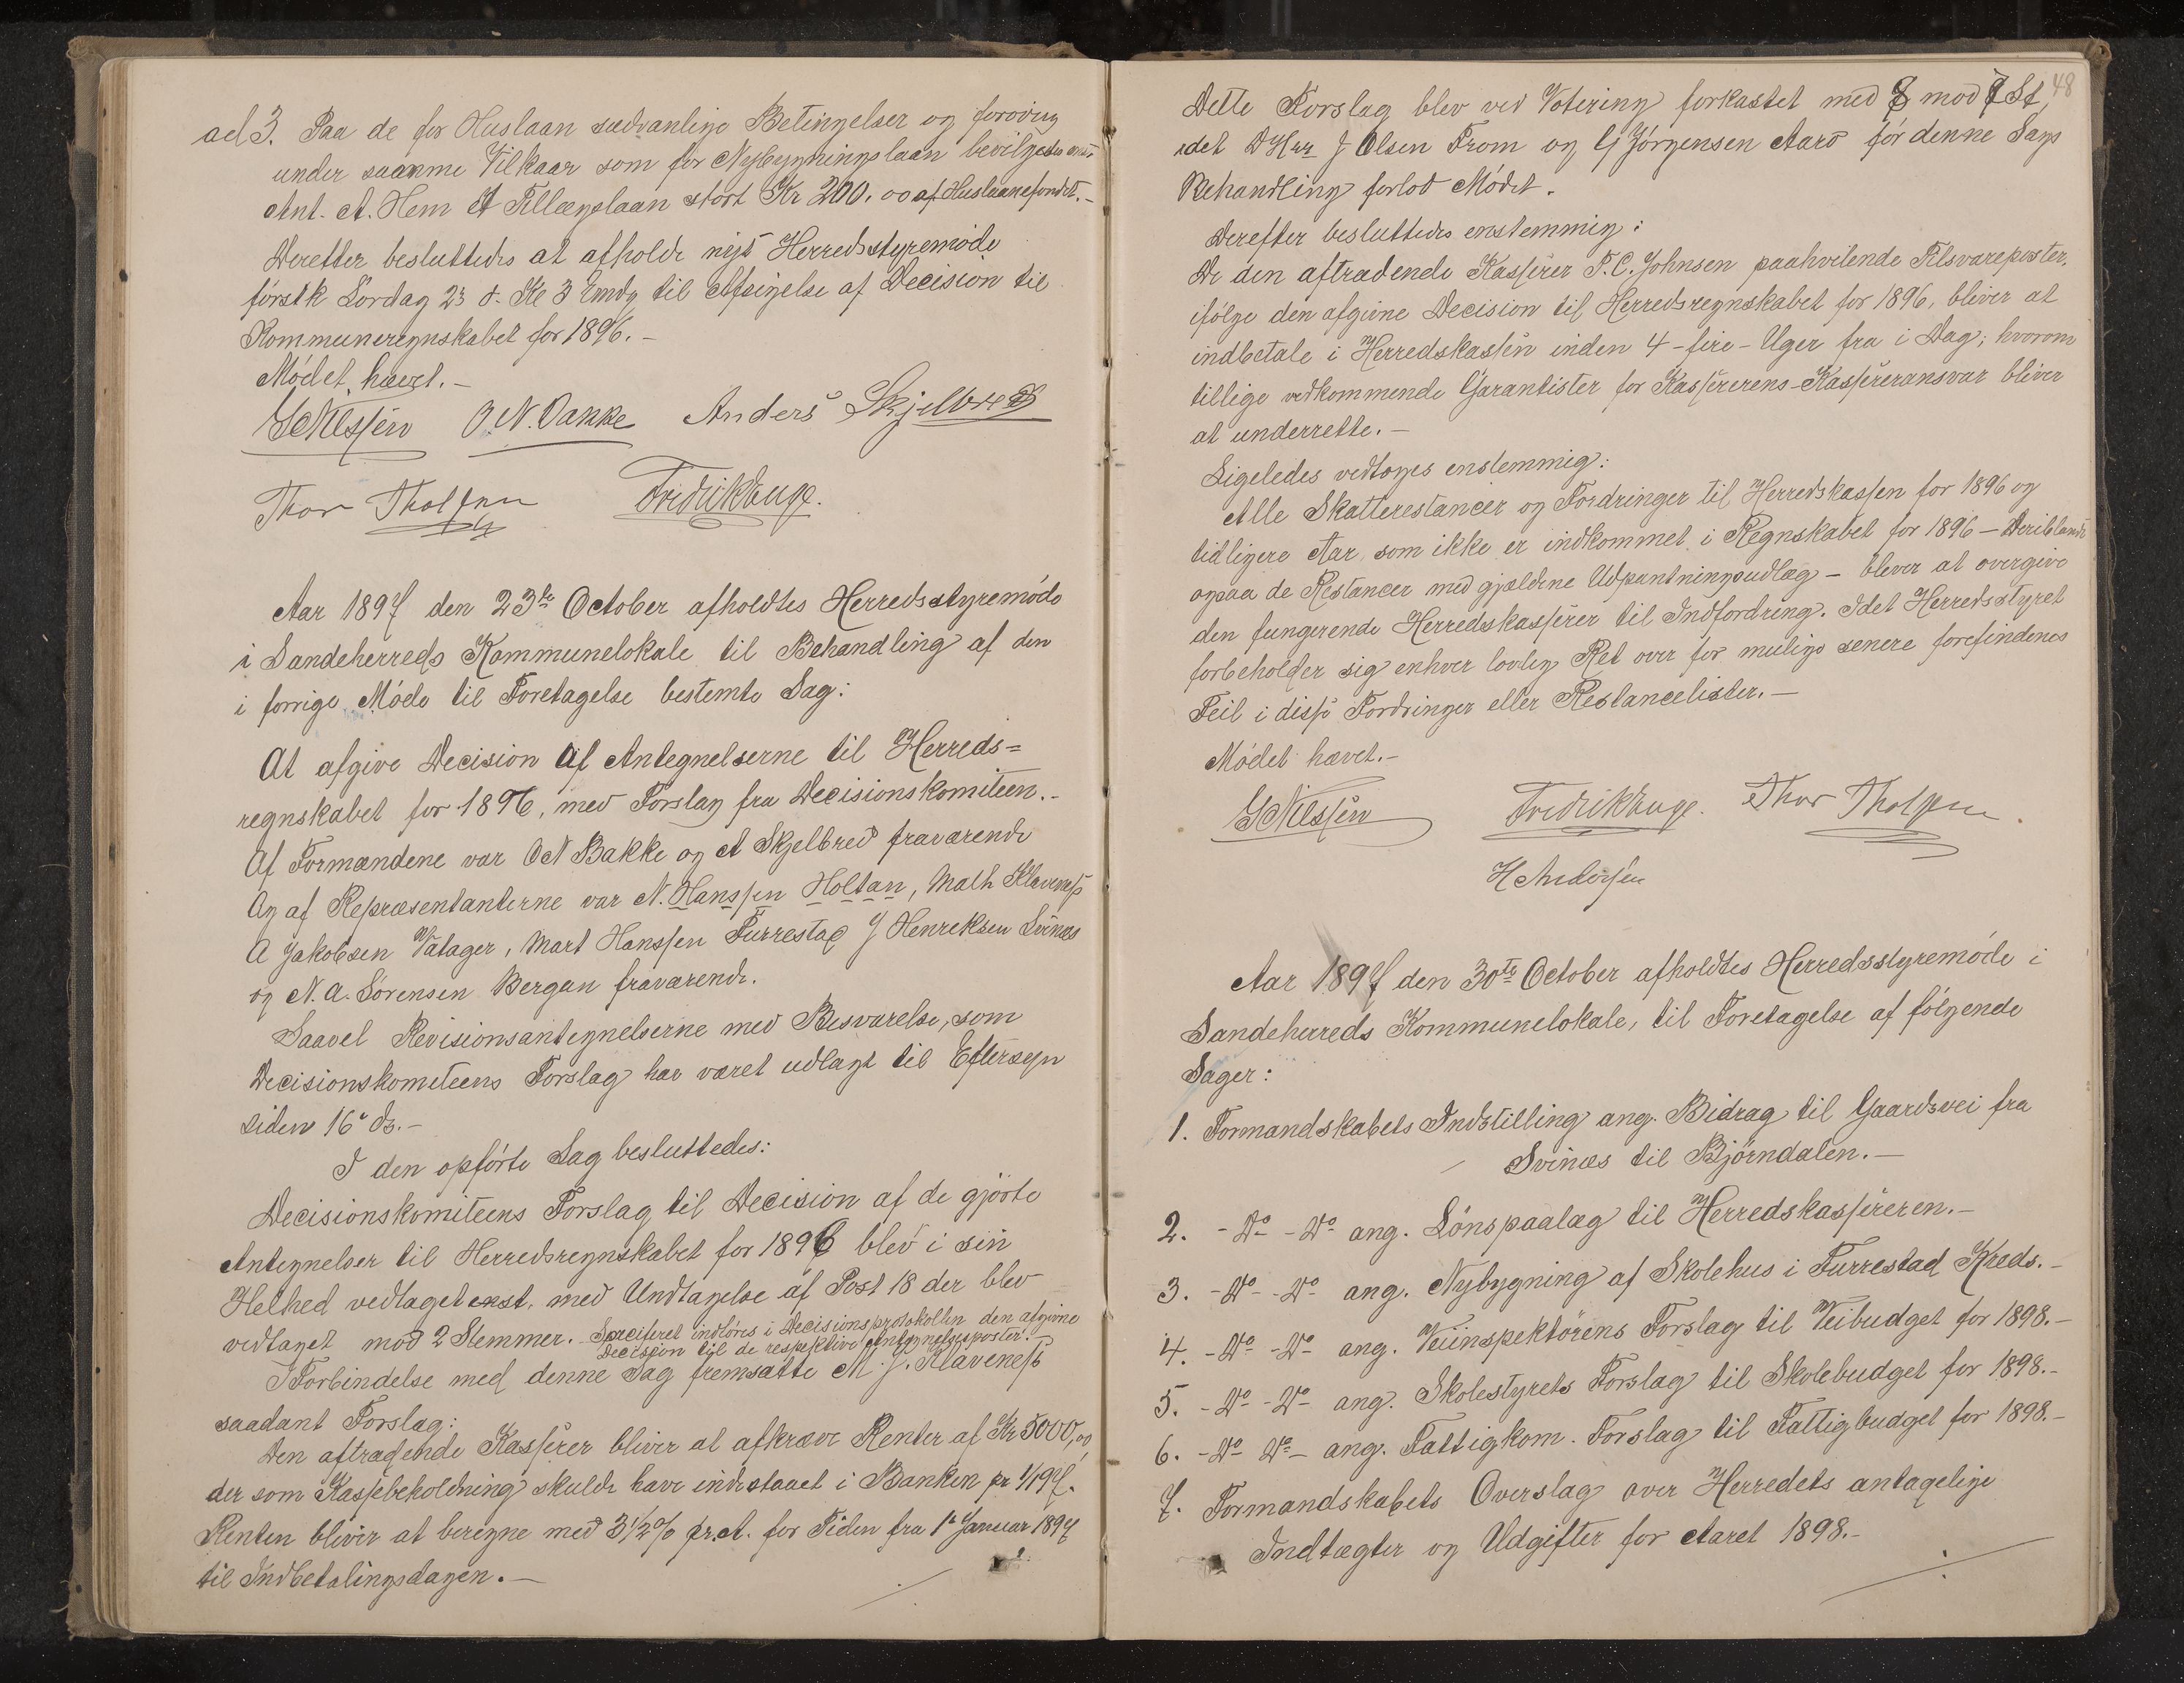 ad 3. Paa de for Huslaan sædvanlige Betingelser og forøvrig
under saamme Vilkaar som for Nybygningslaan bevilgedes
Ant. A. Hem Et Tillægslaan stort Kr 200.00 af Huslaanefondet.-
Derefter besluttedes at afholde nyt Herredsstyremøde
førstk Lørdag 23 d. Kl 3 Emdg til Afsigelse af Decision til
Kommuneregnskabet for 1896.-
Mødet hævet.-
O. N. Bakke Anders Skjelbred
Thor Tholfsen Fredrik Euge.
Aar 1897 den 23de October afholdtes Herredsstyremøde
i Sandeherreds Kommunelokale til Behandling af den
i forrige Møde til Foretagelse bestemte Sag:
At afgive Decision af Antegnelserne til Herreds=
regnskabet for 1896, med Forslag fra Decisionskomiteen.-
Af Formændene var O N Bakke og A Skjelbred fraværende
Og af Repræsentanterne var N. Hanssen Holtan, Math Klavenes
A Jakobsen Vatager, Mart Hanssen Furrestad J Henriksen Svines
og N. A. Sørensen Bergan fraværende.
Saavel Revisionsantegnelserne med Besvarelse, som
Decisionskomiteens Forslag har været udlagt til Eftersyn
siden 16de ds.-
I den opførte Sag besluttedes:
Decisionskomiteens Forslag til Decision af de gjorte
Antegnelser til Herredsregnskabet for 1896 blev i sin
Helhed vedtaget enst. med Undtagelse af Post 18 der blev
vedtaget mod 2 Stemmer. Specificeret indføres i Decisionsprotokollen den afgivne
Decision til de respektive Antegnelsesposter.
I Forbindelse med denne Sag fremsatte M. J. Klaveness
saadant Forslag:
Den aftrædende Kasserer bliver at afkræve Renter af Kr 5000,00
der som Kassebeholdning skulde have indestaaet i Banken pr 1/1 97.
Renten bliver at beregne med 3 1/2 % pr. A. for Tiden fra 1ste Januar 1897
til Indbetalingsdagen.-
48
Dette Forslag blev ved Votering forkastet med 8 mod 7 St,
idet DHrr J Olsen From og G Jørgensen Aarø før denne Sags
Behandling forlod Mødet.
Derefter besluttedes enstemmig:
De den aftrædende Kasserer F. C. Johnsen paahvilende Tilsvarsposter,
ifølge den afgivne Decision til Herredsregnskabet for 1896, bliver at
indbetale i Herredskassen inden 4 - fire - Uger fra i Dag; hvorom
tillige vedkommende Garantister for Kassererens Kassereransvar bliver
at underrette.-
Ligeledes vedtoges enstemmig:
Alle Skatterestancer og Fordringer til Herredskassen for 1896 og
tidligere Aar, som ikke er indkommet i Regnskabet for 1896 - Deriblandt
ogsaa de Restancer med gjældene Udpantningsudlæg - bliver at overgive
den fungerende Herredskasserer til Indfordring. Idet Herredsstyret
forbeholder sig enhver lovlig Ret over for mulige senere forefindenes
Feil i disse Fordringer eller Restancelister.-
Mødet hævet.-
Fredrik Euge. Thor Tholfsen
H Andersen
Aar 1897 den 30te October afholdtes Herredsstyremøde i
Sandeherreds Kommunelokale, til Foretagelse af følgende
Sager:
1. Formandskabets Indstilling ang. Bidrag til Gaardsvei fra
Svines til Bjørndalen.-
2. - Do - Do ang. Lønspaalæg til Herredskassereren.-
3. - Do - Do ang. Nybygning af Skolehus i Furrestad Kreds.-
4. - Do - Do ang. Veiinspektørens Forslag til Veibudget for 1898.-
5. - Do - Do ang. Skolestyrets Forslag til Skolebudget for 1898.-
6. - Do Do - ang. Fattigkom. Forslag til Fattigbudget for 1898.-
7. Formandskabets Overslag over Herredets antagelige
Indtægter og Udgifter for Aaret 1898.-